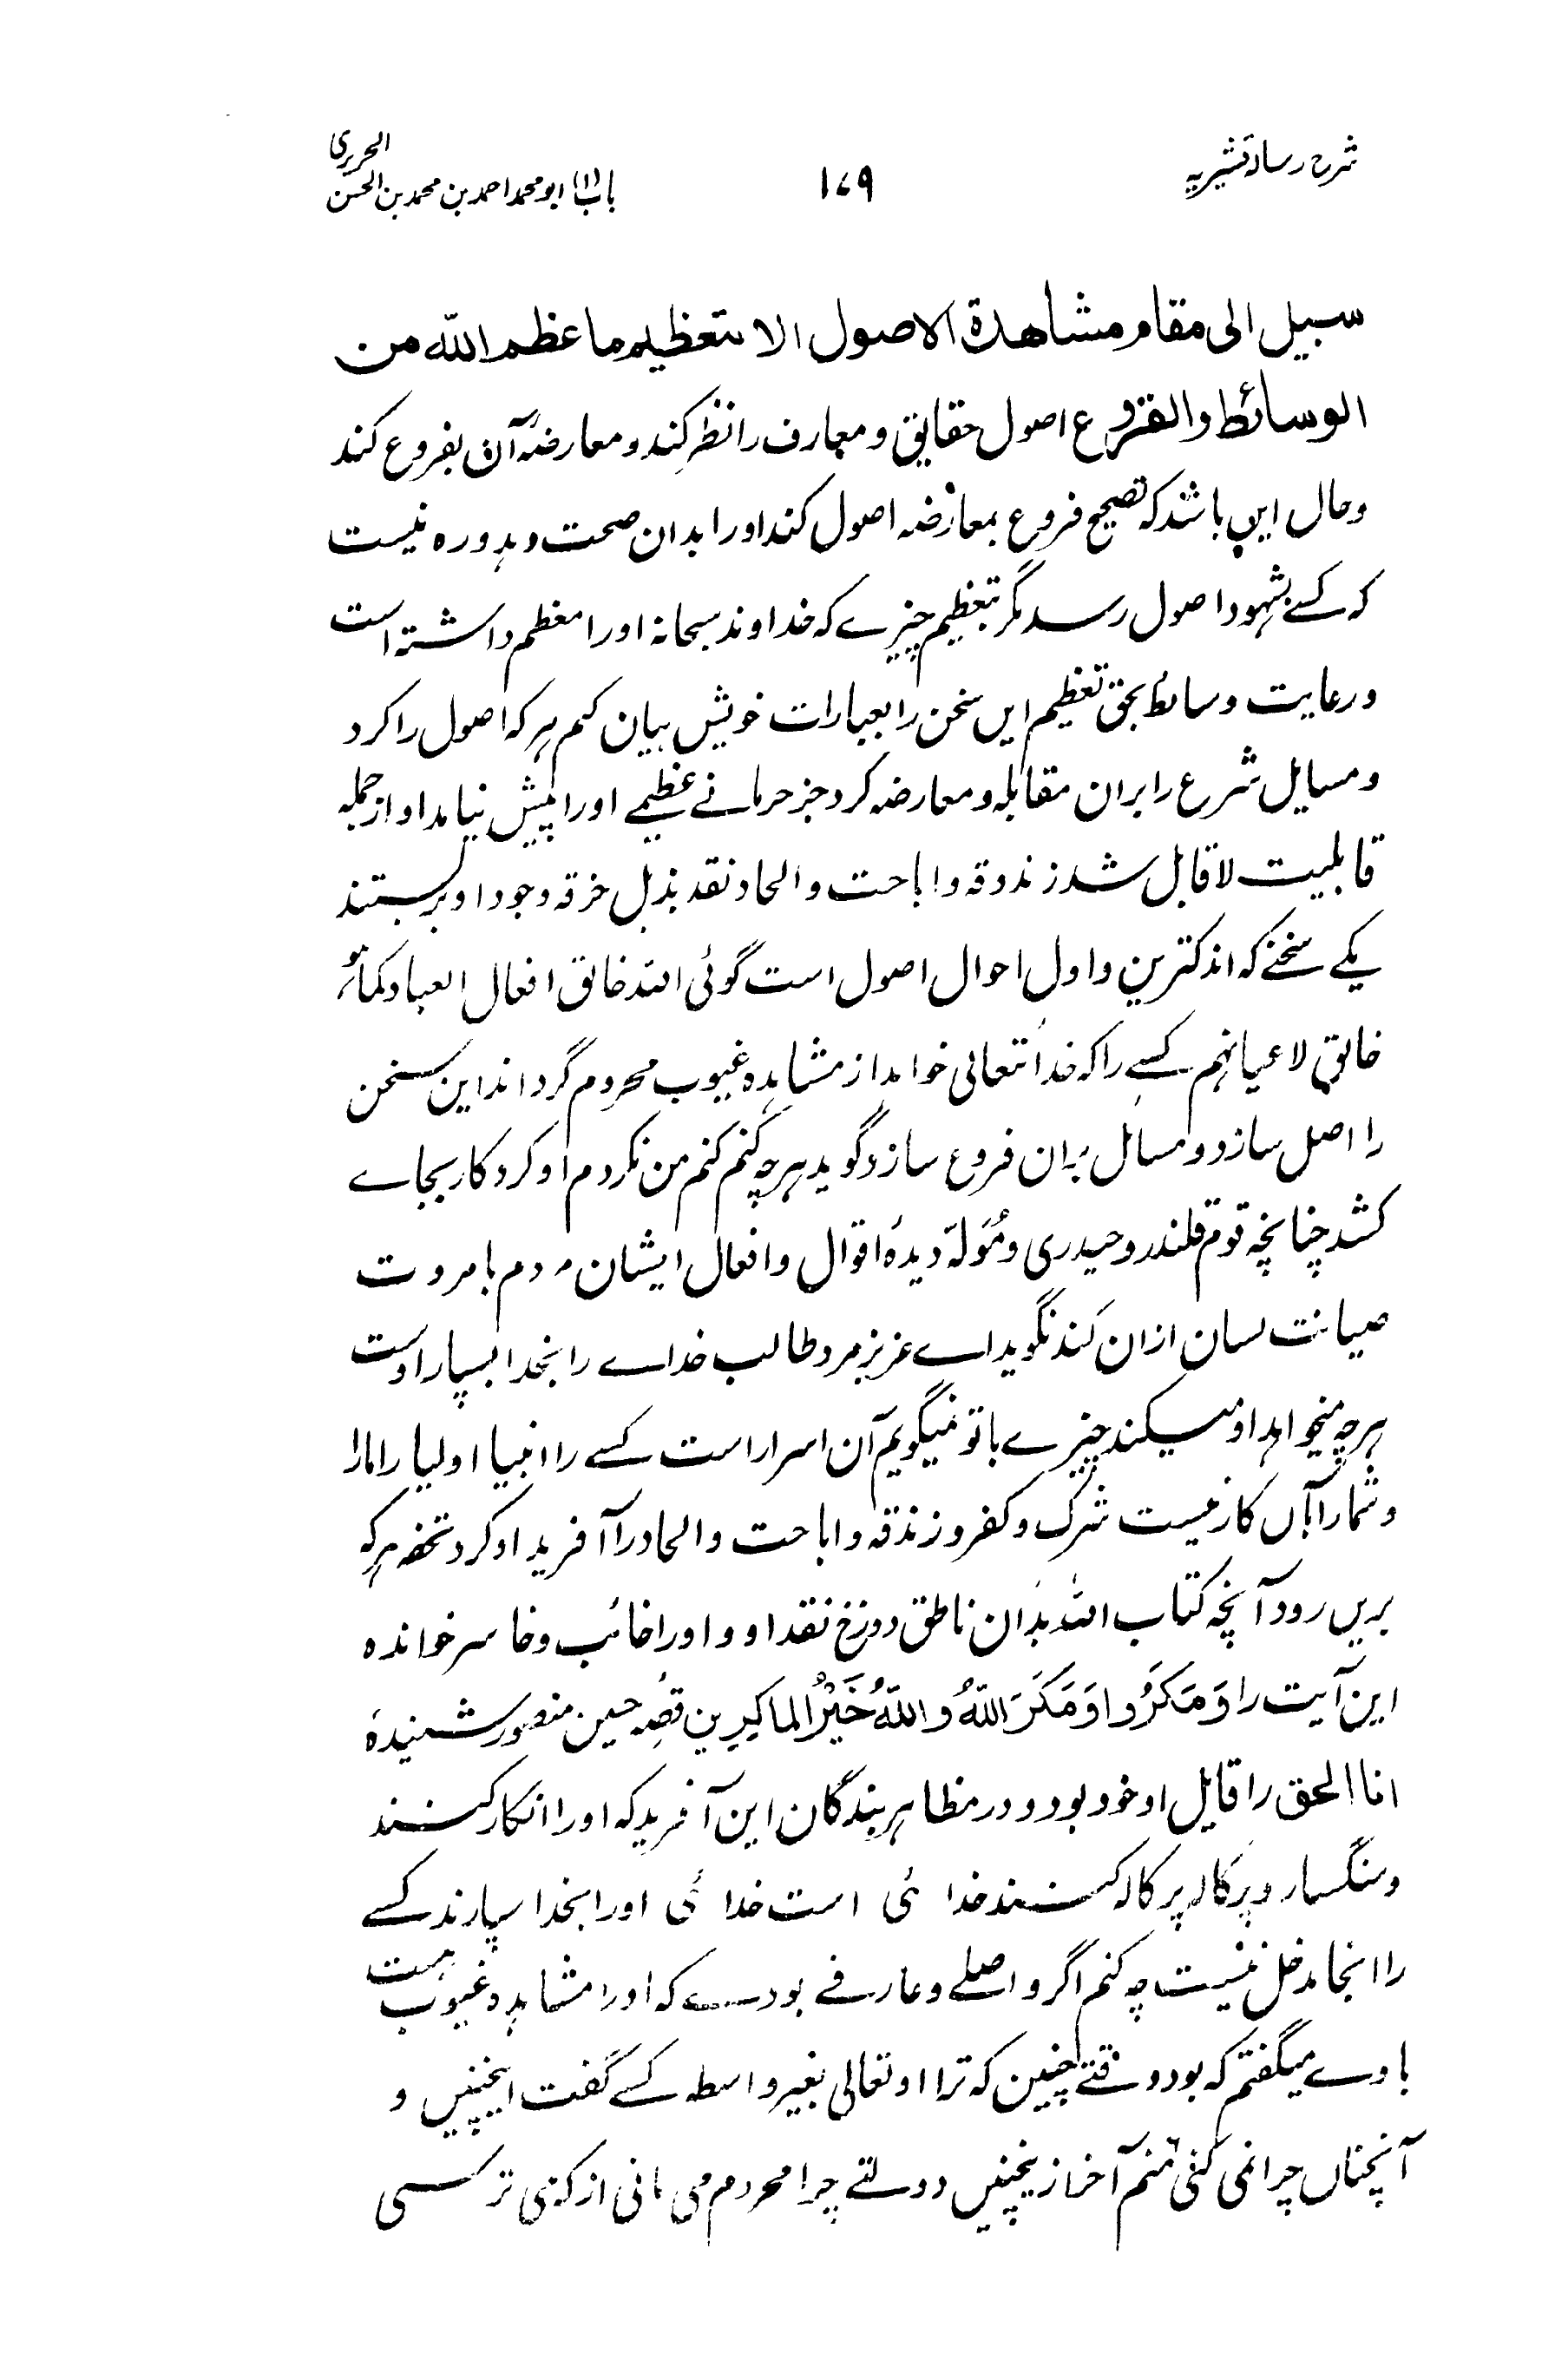 شرح رسالہ قشیریہ
۱۷۹
الحریری
باب (۱) ابو محمد احمد بن محمد بن الحسن
سبیل الی مقام مشاهدة الاصول الا بتعظیم ما عظم الله من
الوسائط والفروع اصول حقایق و معارف را نظر کند و معارضۂ آن بفروع کند
و حال این باشد کہ تصحیح فروع بمعارضہ اصول کند او را بدان صحت دہد و ره نیست
کہ کسے بشہود اصول رسد مگر بتعظیم چیزے کہ خداوند سبحانہ او را معظم داشتہ است
و رعایت وسائط بحق تعظیم ایں سخن را بعبارات خویش بیان کنم ہر کہ اصول را کرد
و مسایل شرع را بران مقابلہ و معارضہ کرد جز حرمانے عظیمے او را پیش نیامد او از جملہ
قابلیت لا قابل شد زندوقہ و اباحت و الحاد نقد بذیل خرقہ وجود او بربستند
یکے سخنے کہ اندکترین و اول احوال اصول است گوئی الله خالق افعال العباد کما ہو
خالق لاعیانہم کسے را کہ خدا تعالی خواہد از مشاہدہ غیوب محروم گرداند این سخن
را اصل سازد و مسائل بران فروع سازد گوید ہر چہ کنم کنم من نکردم او کرد کار بجاے
کشد چنانچہ قوم قلندر و حیدری و مُوَلّہ دیدۂ اقوال و افعال ایشان مردم بامروت
صیانت لسان ازان کند نگوید اے عزیز مرد طالب خداے را بخدا بسپار اوست
ہرچہ میخواہد او میکند چیزے با تو نمیگویم آن اسرار است کسے را انبیا اولیا را مارا
و شما را بآں کار نیست شرک و کفر و زندقہ و اباحت و الحاد را آفرید او کرد تحفہ ہر کہ
بریں رود آنچہ کتاب الله بدان ناطق دوزخ نقد او و او را خائب و خاسر خوانده
این آیت را وَمَكَرُوا وَمَكَرَ اللهُ واللهُ خَيْرُ الماكِرِين قصہ حسین منصور شنیدۂ
انا الحق را قایل او خود بود و در مظاہر بندگان این آفرید کہ او را انکار کنند
و سنگسار و پرکالہ پرکالہ کنند خدا ئی است خدا ئی او را بخدا سپارند کسے
را انجا مدخل نیست چہ کنم اگر واصلے و عارفے بودے کہ او را مشاہدہ غیوب ہست
باوے میگفتم کہ بود وقتے چنین کہ ترا او تعالی بغیر واسطہ کسے گفت اینچنیں و
آنچناں چرا نمی کنی منم آخر از ینچنیں دولتے چرا محروم می مانی از کہ می ترسی